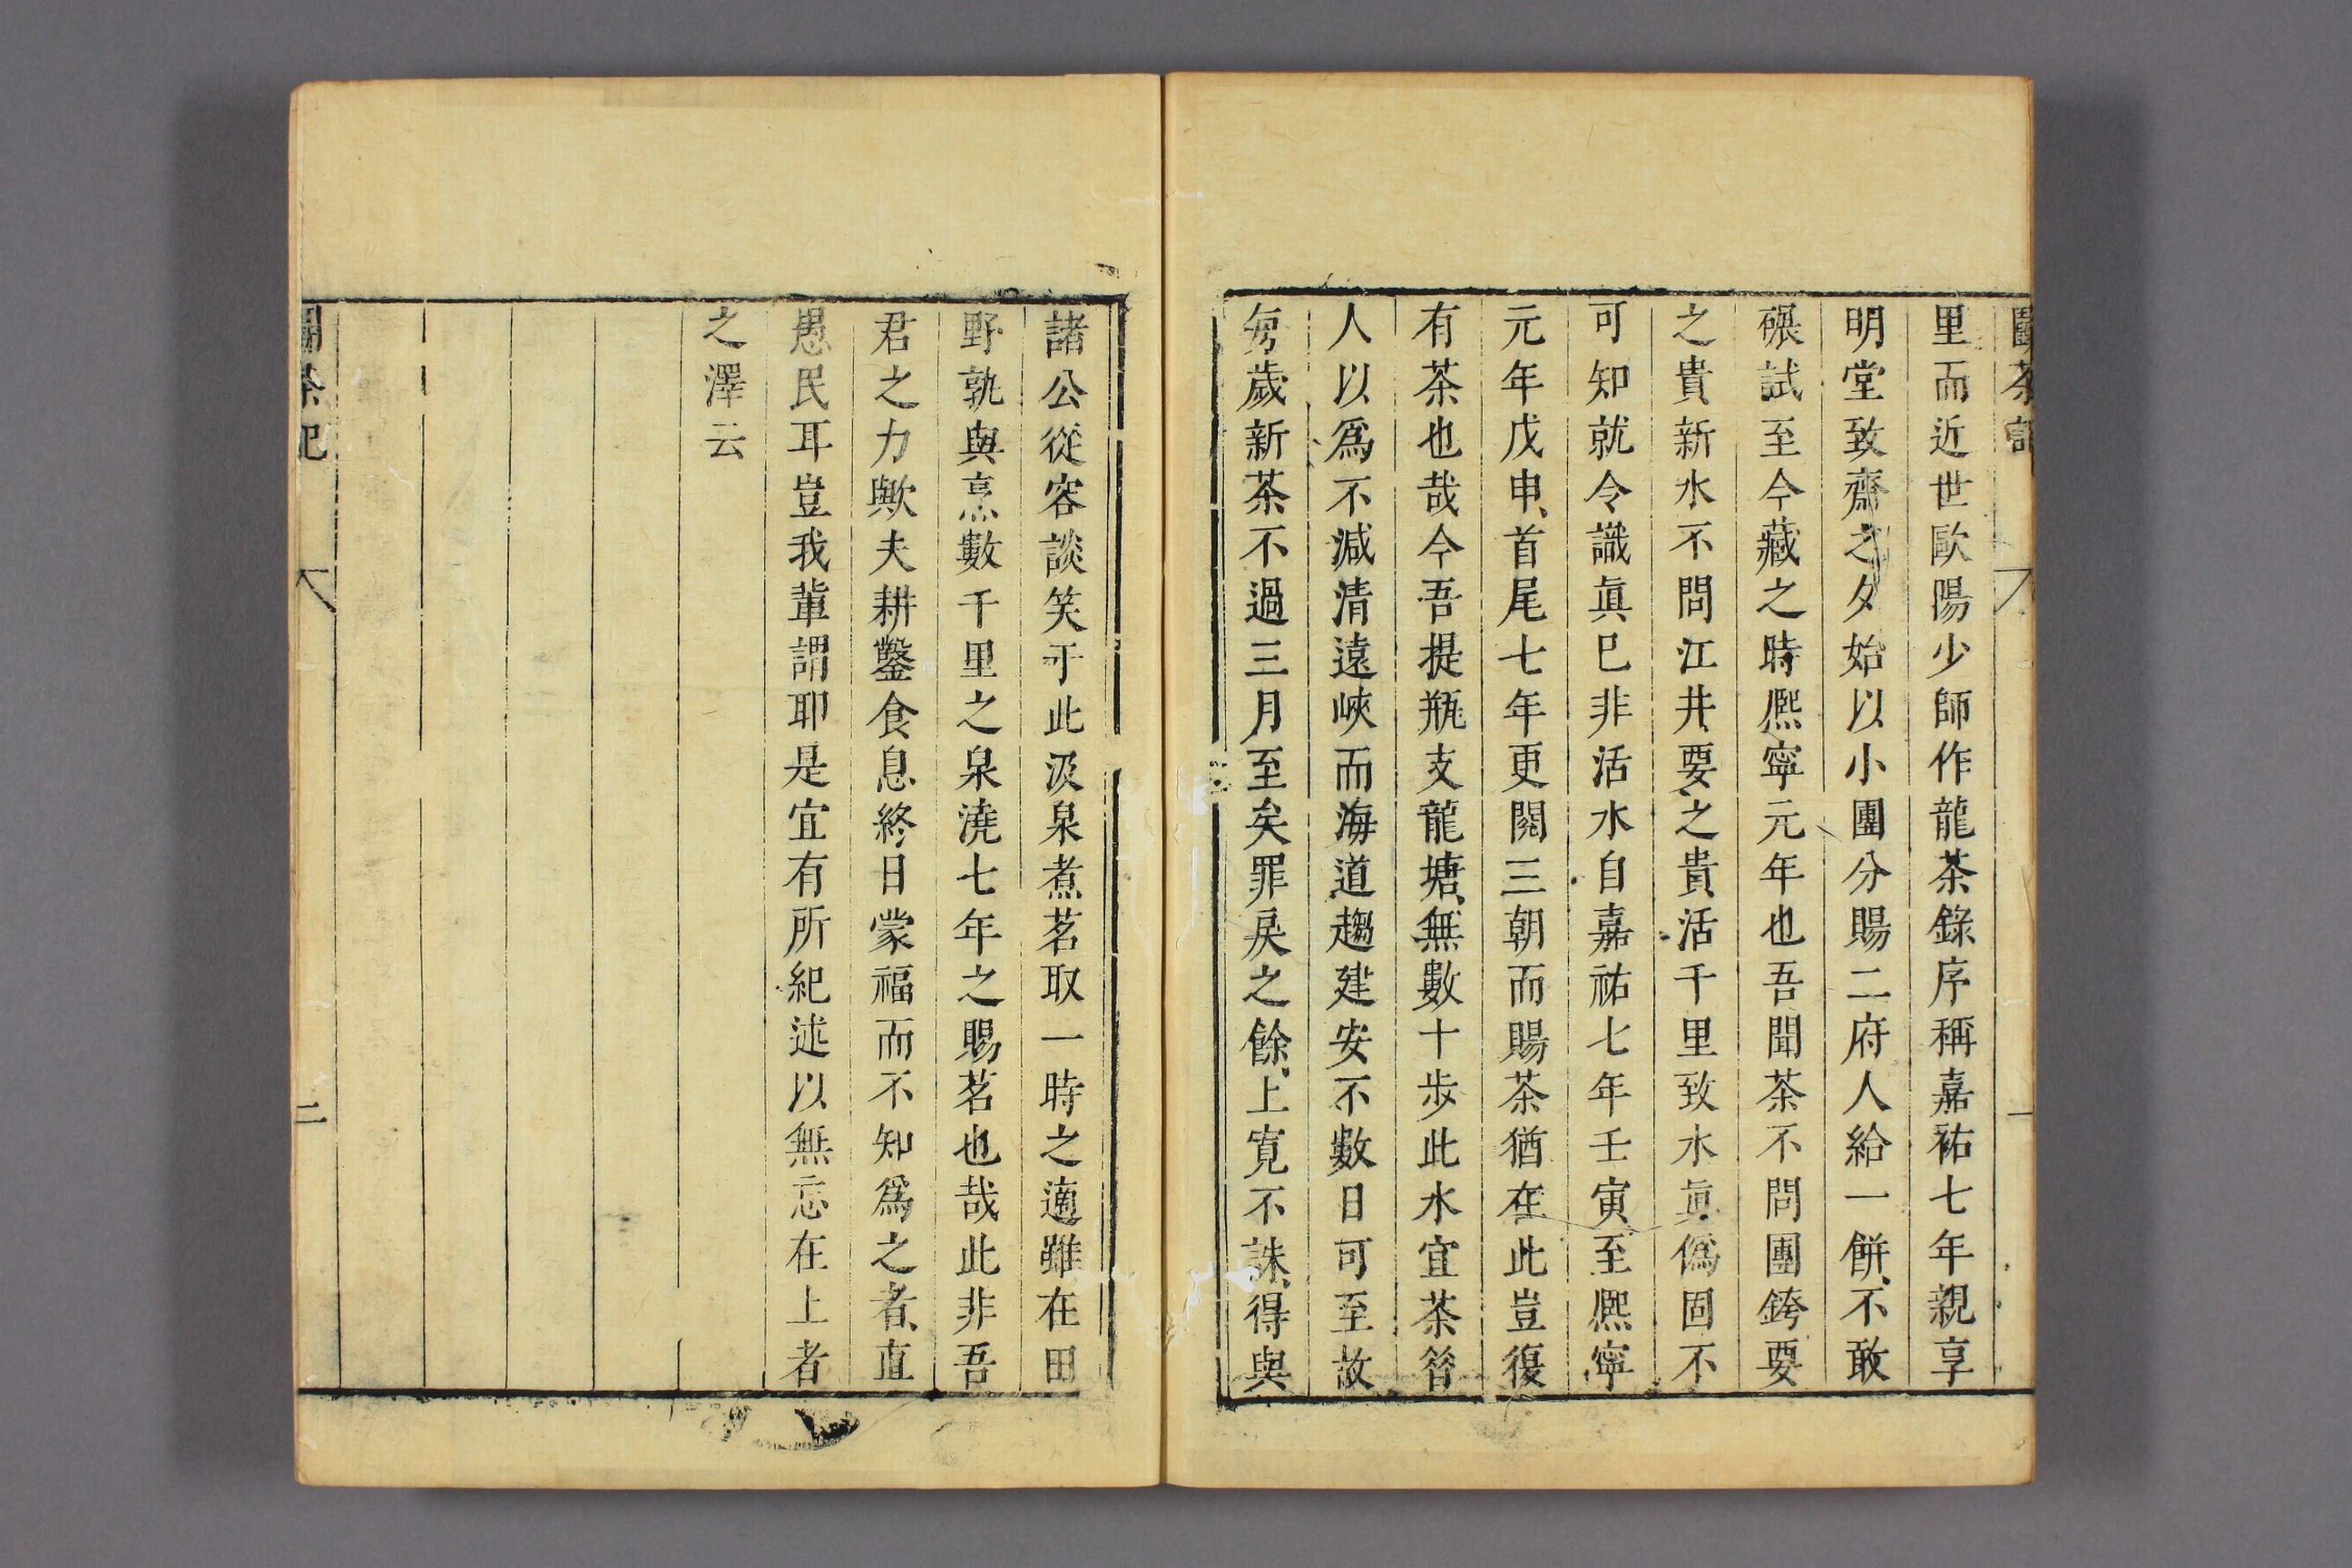 鬭茶記
一
里而近世歐陽少師作龍茶錄序稱嘉祐七年親享
明堂致齋之夕始以小團分賜二府人給一餅不敢
碾試至今藏之時熈寧元年也吾聞茶不問團銙要
之貴新水不問江井要之貴活千里致水眞僞固不
可知就令識眞巳非活水自嘉祐七年壬寅至熈寧
元年戊申首尾七年更閱三朝而賜茶猶在此豈復
有茶也哉今吾提瓶支龍塘無數十步此水宜茶昝
人以爲不減清遠峽而海道趨建安不數日可至故
每歲新茶不過三月至矣罪戾之餘上寛不誅得與
諸公從容談笑于此汲泉煮茗取一時之適雖在田
野孰與烹數千里之泉澆七年之賜茗也哉此非吾
君之力歟夫耕鑿食息終日蒙福而不知爲之者直
愚民耳豈我軰謂耶是宜有所紀述以無忘在上者
之澤云
鬭茶記
二